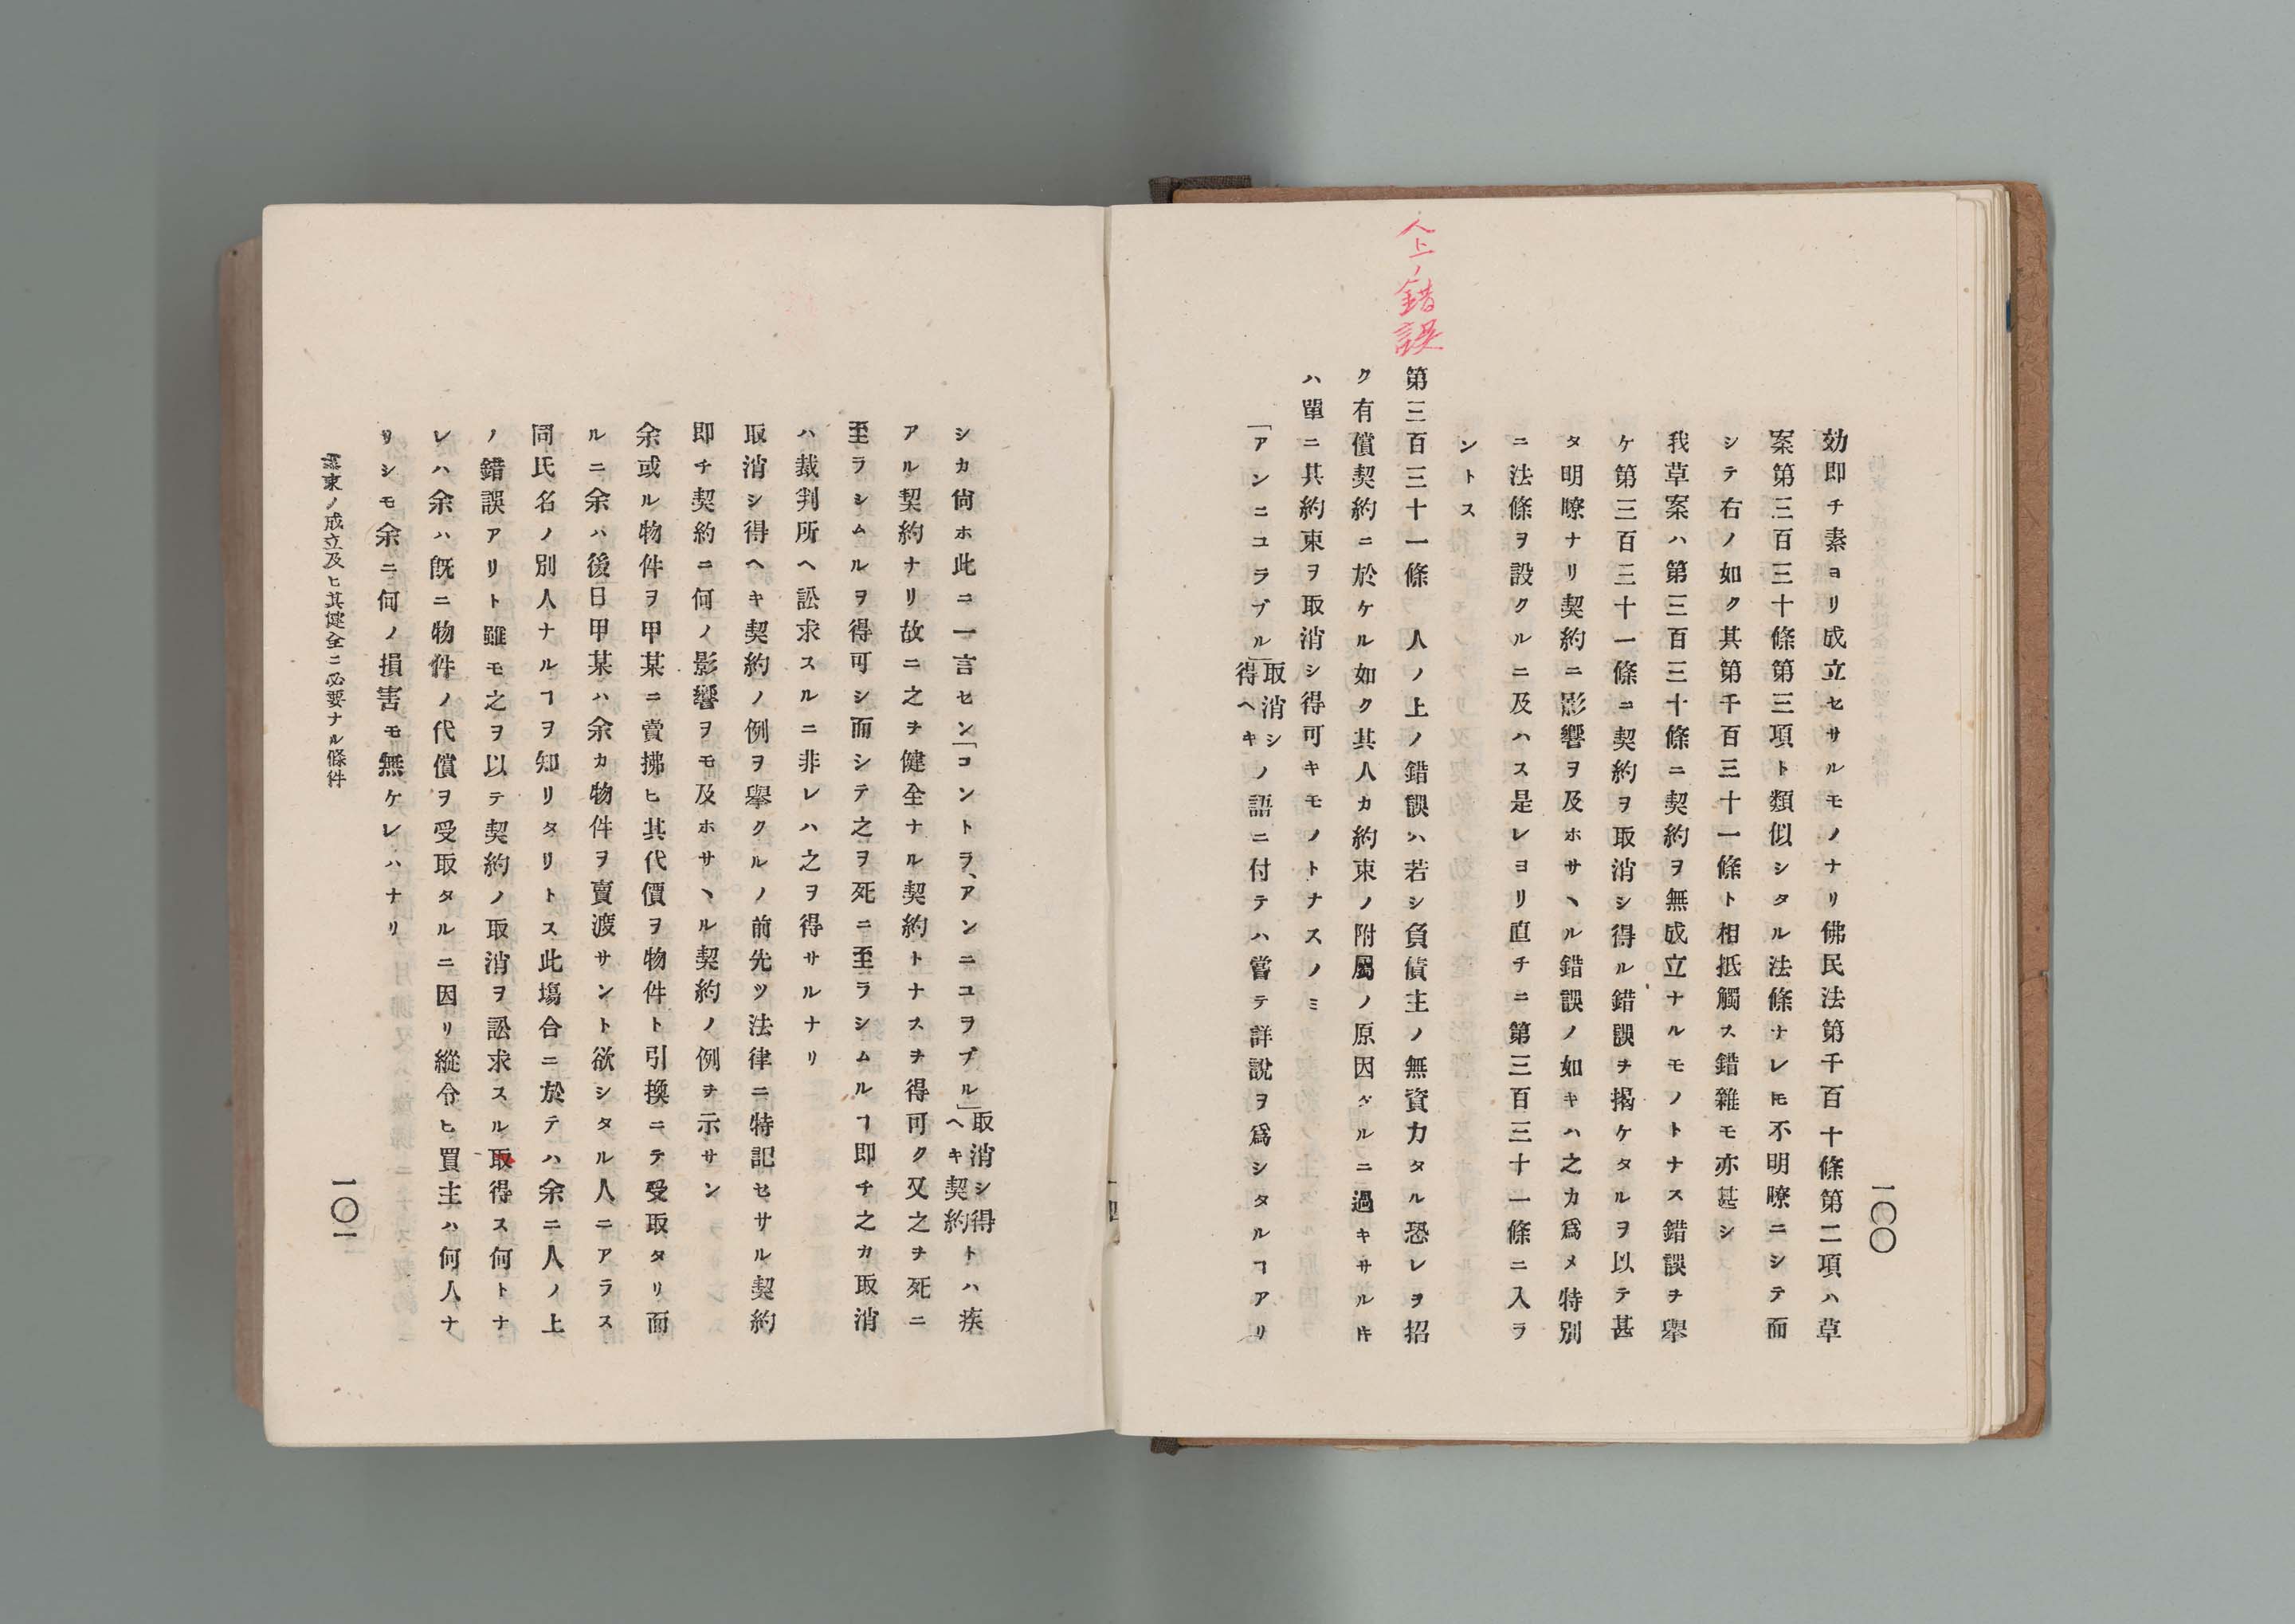 一〇〇
効即チ素ヨリ成立セサルモノナリ佛民法第千百十條第二項ハ草
案第三百三十條第三項ト類似シタル法條ナレ𪜈不明瞭ニシテ而
シテ右ノ如ク其第千百三十一條ト相抵觸ス錯雜モ亦甚シ
我草案ハ第三百三十條ニ契約ヲ無成立ナルモノトナス錯誤ヲ擧
ケ第三百三十一條ニ契約ヲ取消シ得ル錯誤ヲ揭ケタルヲ以テ甚
タ明瞭ナリ契約ニ影響ヲ及ホサヽル錯誤ノ如キハ之カ爲メ特別
ニ法條ヲ設クルニ及ハス是レヨリ直チニ第三百三十一條ニ入ラ
ントス
人上ノ錯誤
第三百三十一條　人ノ上ノ錯誤ハ若シ負債主ノ無資力タル恐レヲ招
ク有償契約ニ於ケル如ク其人カ約束ノ附屬ノ原因タルニ過キサル𪜈
ハ單ニ其約束ヲ取消シ得可キモノトナスノミ
「アンニユラブル」取消シ得ヘキノ語ニ付テハ嘗テ詳說ヲ爲シタルヿアリ
シカ尙ホ此ニ一言セン「コントラ、アンニユラブル」取消シ得ヘキ契約トハ疾
アル契約ナリ故ニ之ヲ健全ナル契約トナスヲ得可ク又之ヲ死ニ
至ラシムルヲ得可シ而シテ之ヲ死ニ至ラシムルヿ即チ之カ取消
ハ裁判所ヘ訟求スルニ非レハ之ヲ得サルナリ
取消シ得ヘキ契約ノ例ヲ擧クルノ前先ツ法律ニ特記セサル契約
即チ契約ニ何ノ影響ヲモ及ホサヽル契約ノ例ヲ示サン
余或ル物件ヲ甲某ニ賣拂ヒ其代價ヲ物件ト引換ニテ受取タリ而
ルニ余ハ後日甲某ハ余カ物件ヲ賣渡サント欲シタル人ニアラス
同氏名ノ別人ナルヿヲ知リタリトス此塲合ニ於テハ余ニ人ノ上
ノ錯誤アリト雖モ之ヲ以テ契約ノ取消ヲ訟求スル取得ス何トナ
レハ余ハ旣ニ物件ノ代償ヲ受取タルニ因リ縱令ヒ買主ハ何人ナ
リシモ余ニ何ノ損害モ無ケレハナリ
束ノ成立及ヒ其健全ニ必要ナル條件
一〇一